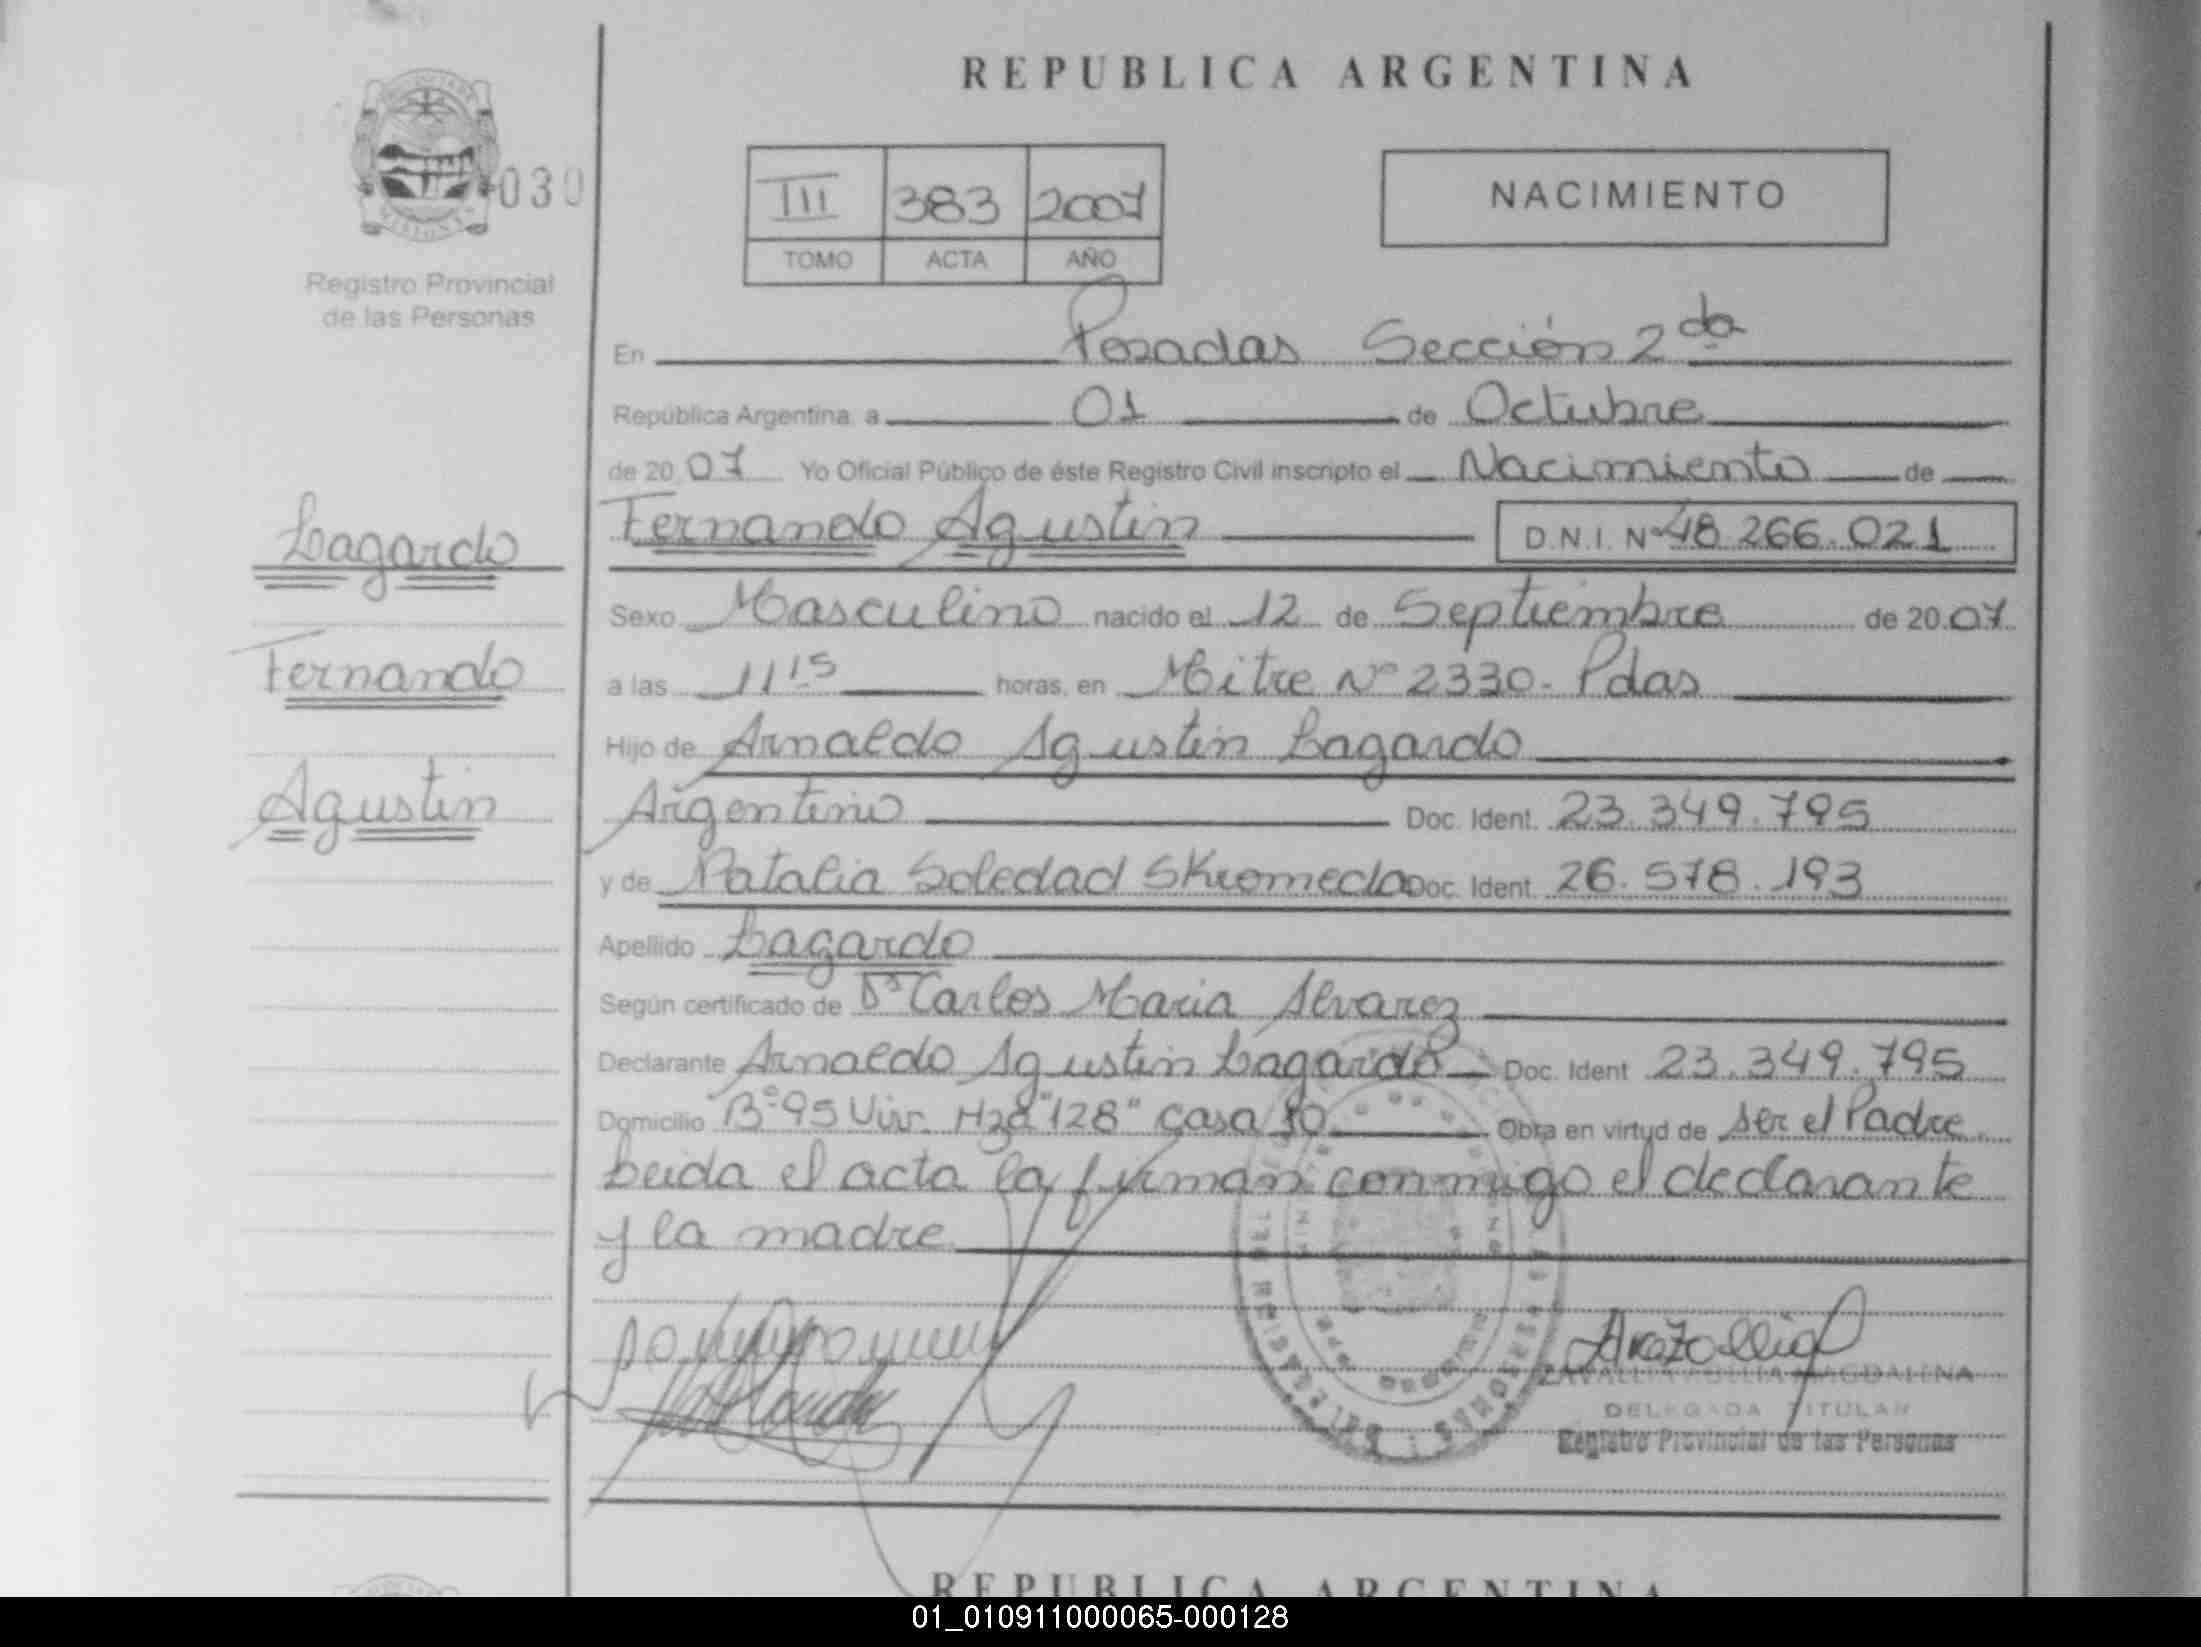 REPUBLICA ARGENTINA
030
Registro Provincial
de las Personas
III 383 2007
TOMO ACTA AÑO
NACIMIENTO
En Posadas Sección 2da
República Argentina, a 01 de Octubre
de 2007 Yo Oficial Público de éste Registro Civil inscripto el Nacimiento de
Lagardo
Fernando
Agustin
Fernando Agustin D.N.I. Nº 48.266.021
Sexo Masculino nacido el 12 de Septiembre de 2007
a las 11 15 horas, en Mitre Nº 2330- Pdas
Hijo de Arnaldo Agustin Lagardo
Argentino Doc. Ident. 23.349.795
y de Natalia Soledad Skromeda Doc. Ident. 26.578.193
Apellido Lagardo
Según certificado de Dr Carlos Maria Alvarez
Declarante Arnaldo Agustin Lagardo Doc. Ident 23.349.795
Domicilio Bº 95 Viv. Mza "128" Casa 10 Obra en virtud de ser el Padre
Leida el acta la firman conmigo el declarante
y la madre
MAGDALENA
DELEGADA TITULAR
Registro Provincial de las Personas
REPUBLICA ARGENTINA
01_010911000065-000128